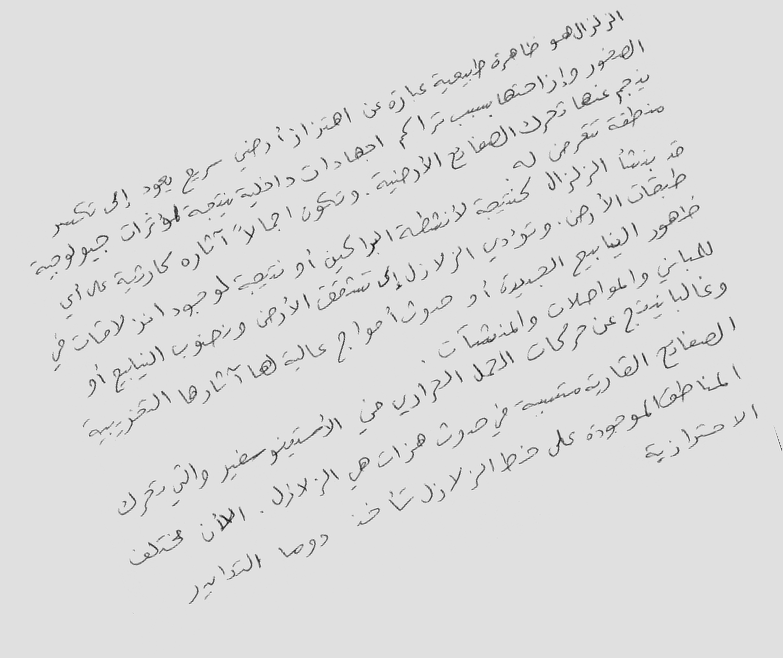 الزلزال هو ظاهرة طبيعية عبارة عن اهتزاز أرضي سريع يعود إلى تكسر
الصخور وإزاحتها بسبب تراكم اجهادات داخلية نتيجة لمؤثرات جيولوجية
ينجم عنها تحرك الصفائح الأرضية. وتكون اجمالاً آثاره كارثية على أي
منطقة تتعرض له
قد ينشأ الزلزال كنتيجة لأنشطة البراكين أو نتيجة لوجود انزلاقات في
طبقات الأرض. وتؤدي الزلازل إلى تشقق الأرض ونضوب الينابيع أو
ظهور الينابيع الجديدة أو حدوث أمواج عالية لها آثارها التخريبية
للمباني والمواصلات والمنشآت.
وغالبا ينتج عن حركات الحمل الحراري في الأستينوسفير والتي تحرك
الصفائح القارية متسببة في حدوث هزات هي الزلازل. الأن مختلف
المناطق الموجودة على خط الزلازل تأخذ دوما التدابير
الاحترازية